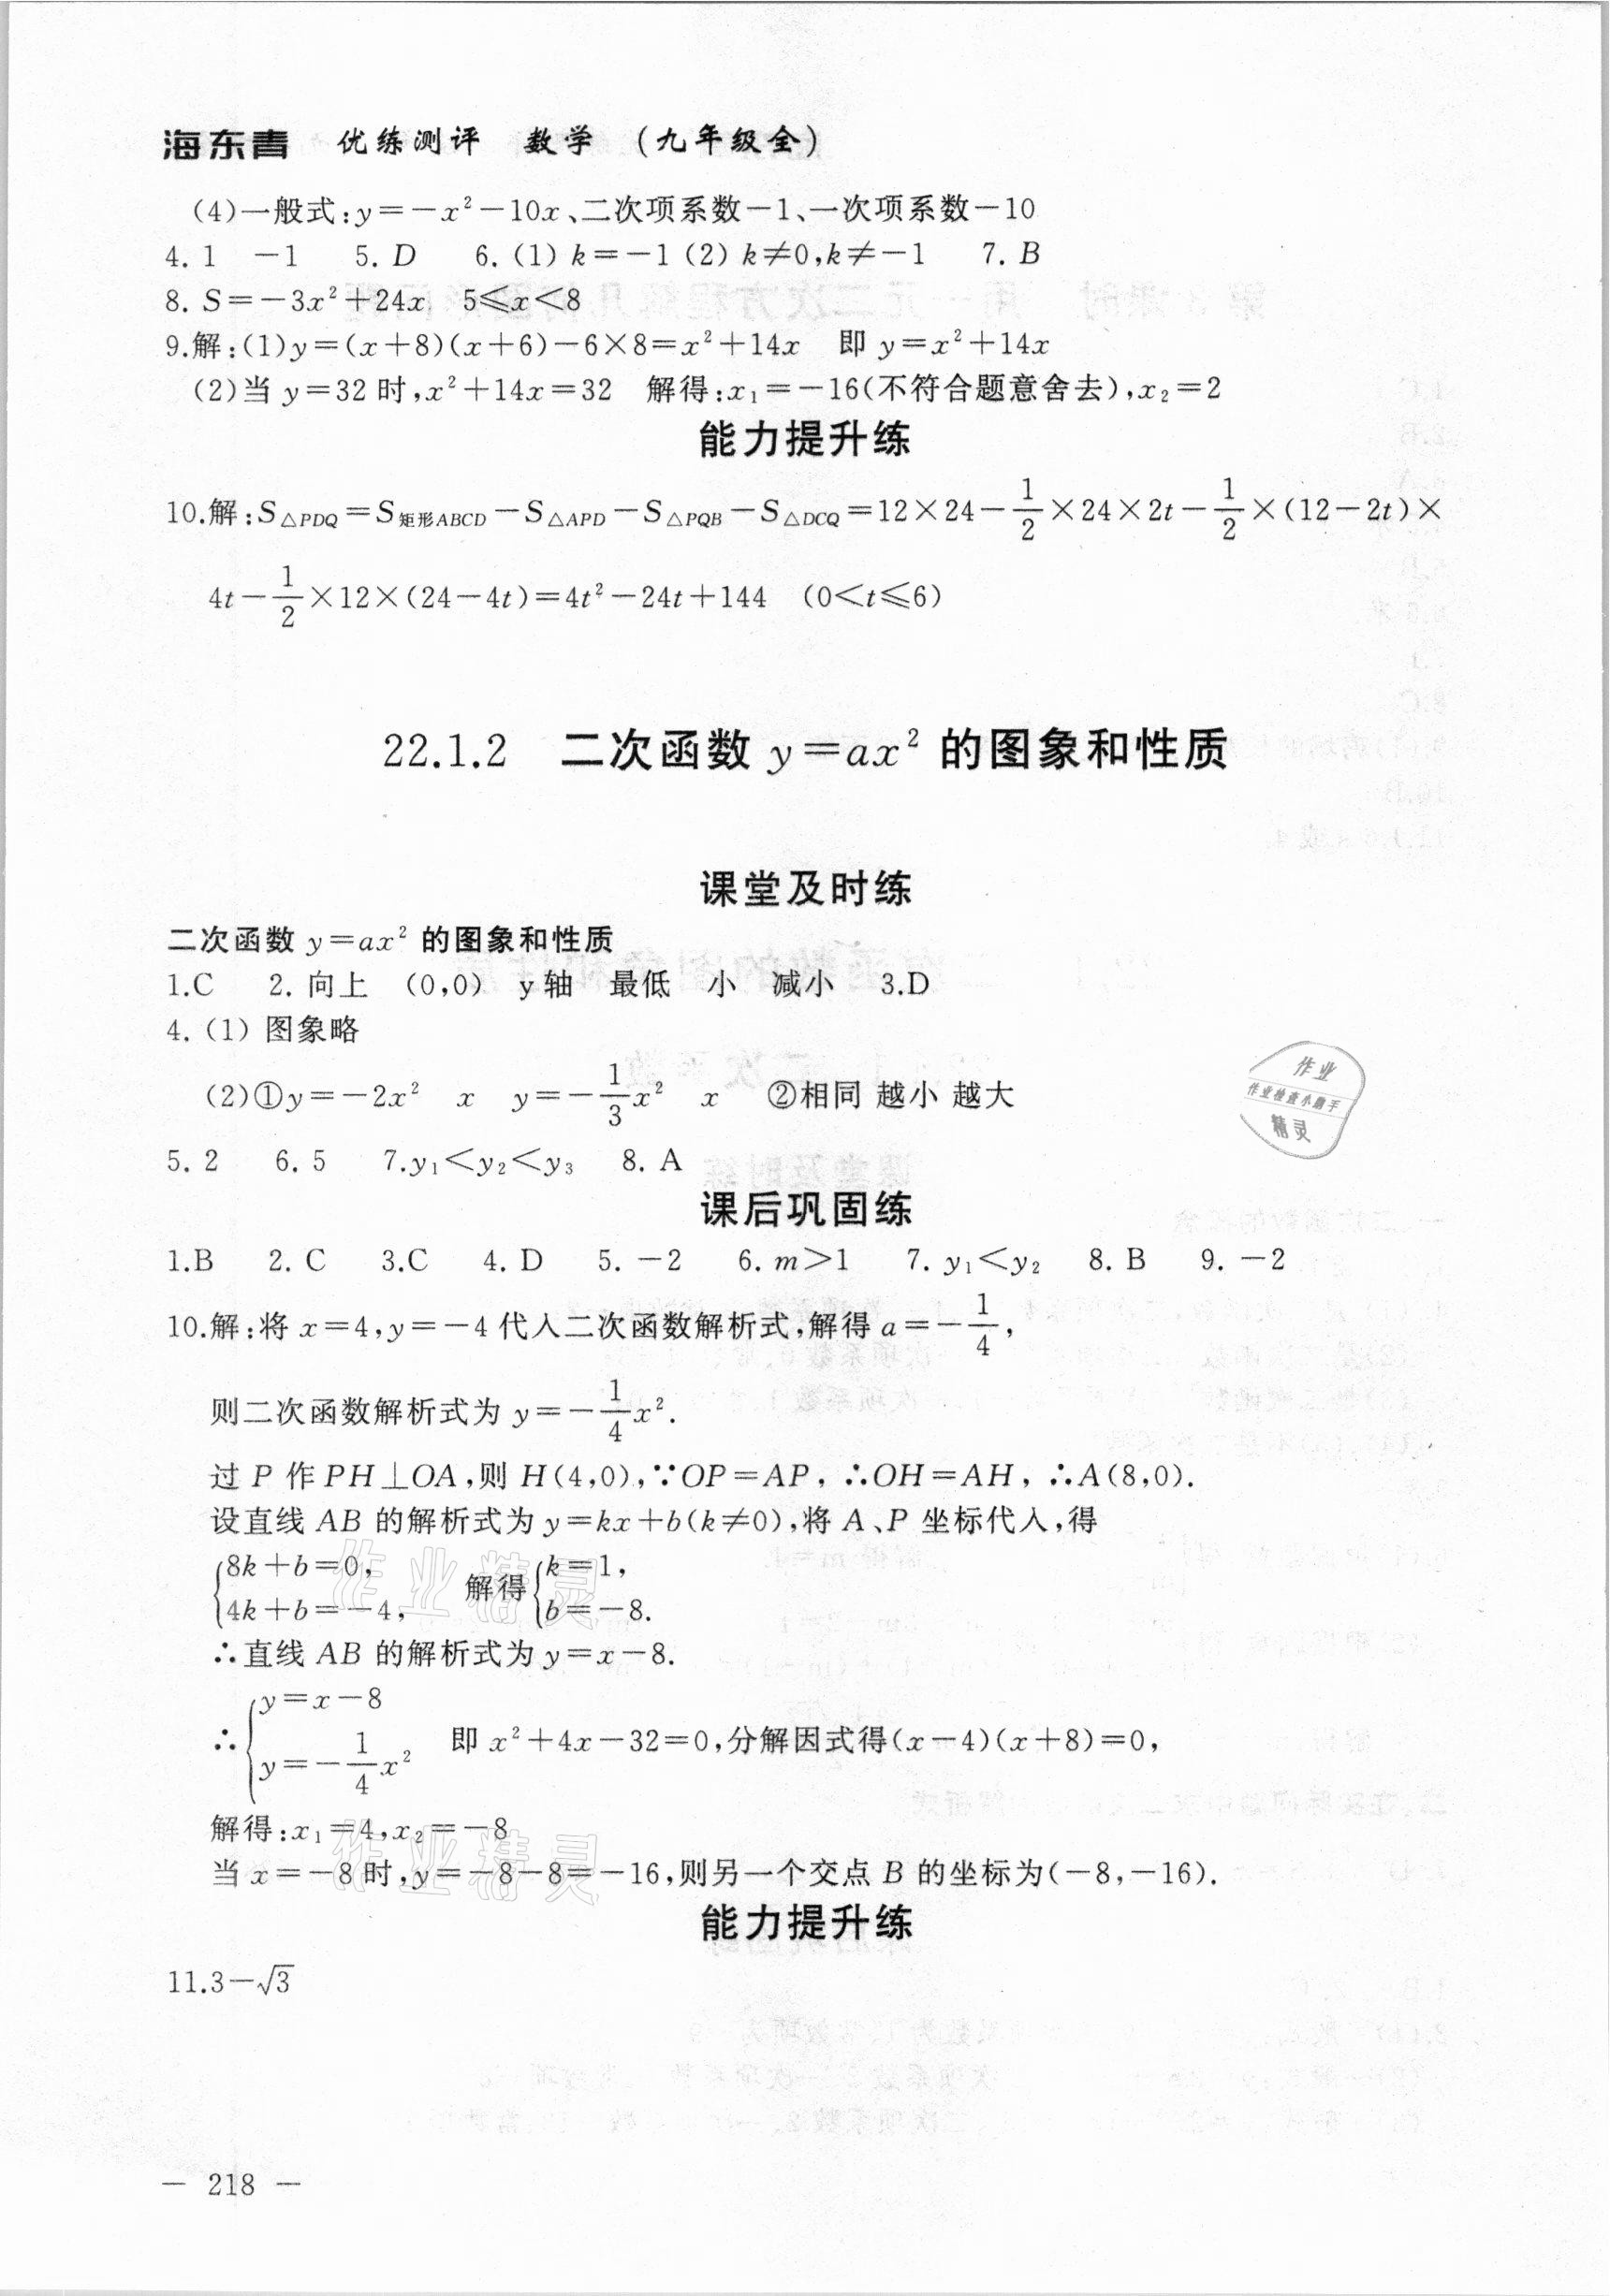 海东青 优练测评 数学 (九年级全)
(4)一般式:y=-x²-10x、二次项系数-1、一次项系数-10
4. 1 -1 5. D 6. (1) k=-1 (2) k≠0,k≠-1 7. B
8. S=-3x²+24x 5≤x<8
9.解:(1)y=(x+8)(x+6)-6×8=x²+14x 即 y=x²+14x
(2)当 y=32 时,x²+14x=32 解得:x₁=-16(不符合题意舍去),x₂=2
能力提升练
10.解:S△PDQ=S矩形ABCD-S△APD-S△PQB-S△DCQ=12×24-1/2×24×2t-1/2×(12-2t)×
4t-1/2×12×(24-4t)=4t²-24t+144 (0<t≤6)
22.1.2 二次函数 y=ax² 的图象和性质
课堂及时练
二次函数 y=ax² 的图象和性质
1.C 2. 向上 (0,0) y轴 最低 小 减小 3.D
4. (1) 图象略
(2)①y=-2x² x y=-1/3x² x ②相同 越小 越大
5. 2 6. 5 7.y₁<y₂<y₃ 8. A
课后巩固练
1.B 2. C 3.C 4. D 5. -2 6. m>1 7. y₁<y₂ 8. B 9. -2
10.解:将 x=4,y=-4 代入二次函数解析式,解得 a=-1/4,
则二次函数解析式为 y=-1/4x².
过 P 作 PH⊥OA,则 H(4,0),∵OP=AP, ∴OH=AH, ∴A(8,0).
设直线 AB 的解析式为 y=kx+b(k≠0),将 A、P 坐标代入,得
{8k+b=0, 4k+b=-4, 解得{k=1, b=-8.
∴直线 AB 的解析式为 y=x-8.
∴{y=x-8 y=-1/4x² 即 x²+4x-32=0,分解因式得(x-4)(x+8)=0,
解得:x₁=4,x₂=-8
当 x=-8时,y=-8-8=-16,则另一个交点 B 的坐标为(-8,-16).
能力提升练
11.3-√3
— 218 —
作业
作业检查小助手
精灵
作业精灵
作业精灵